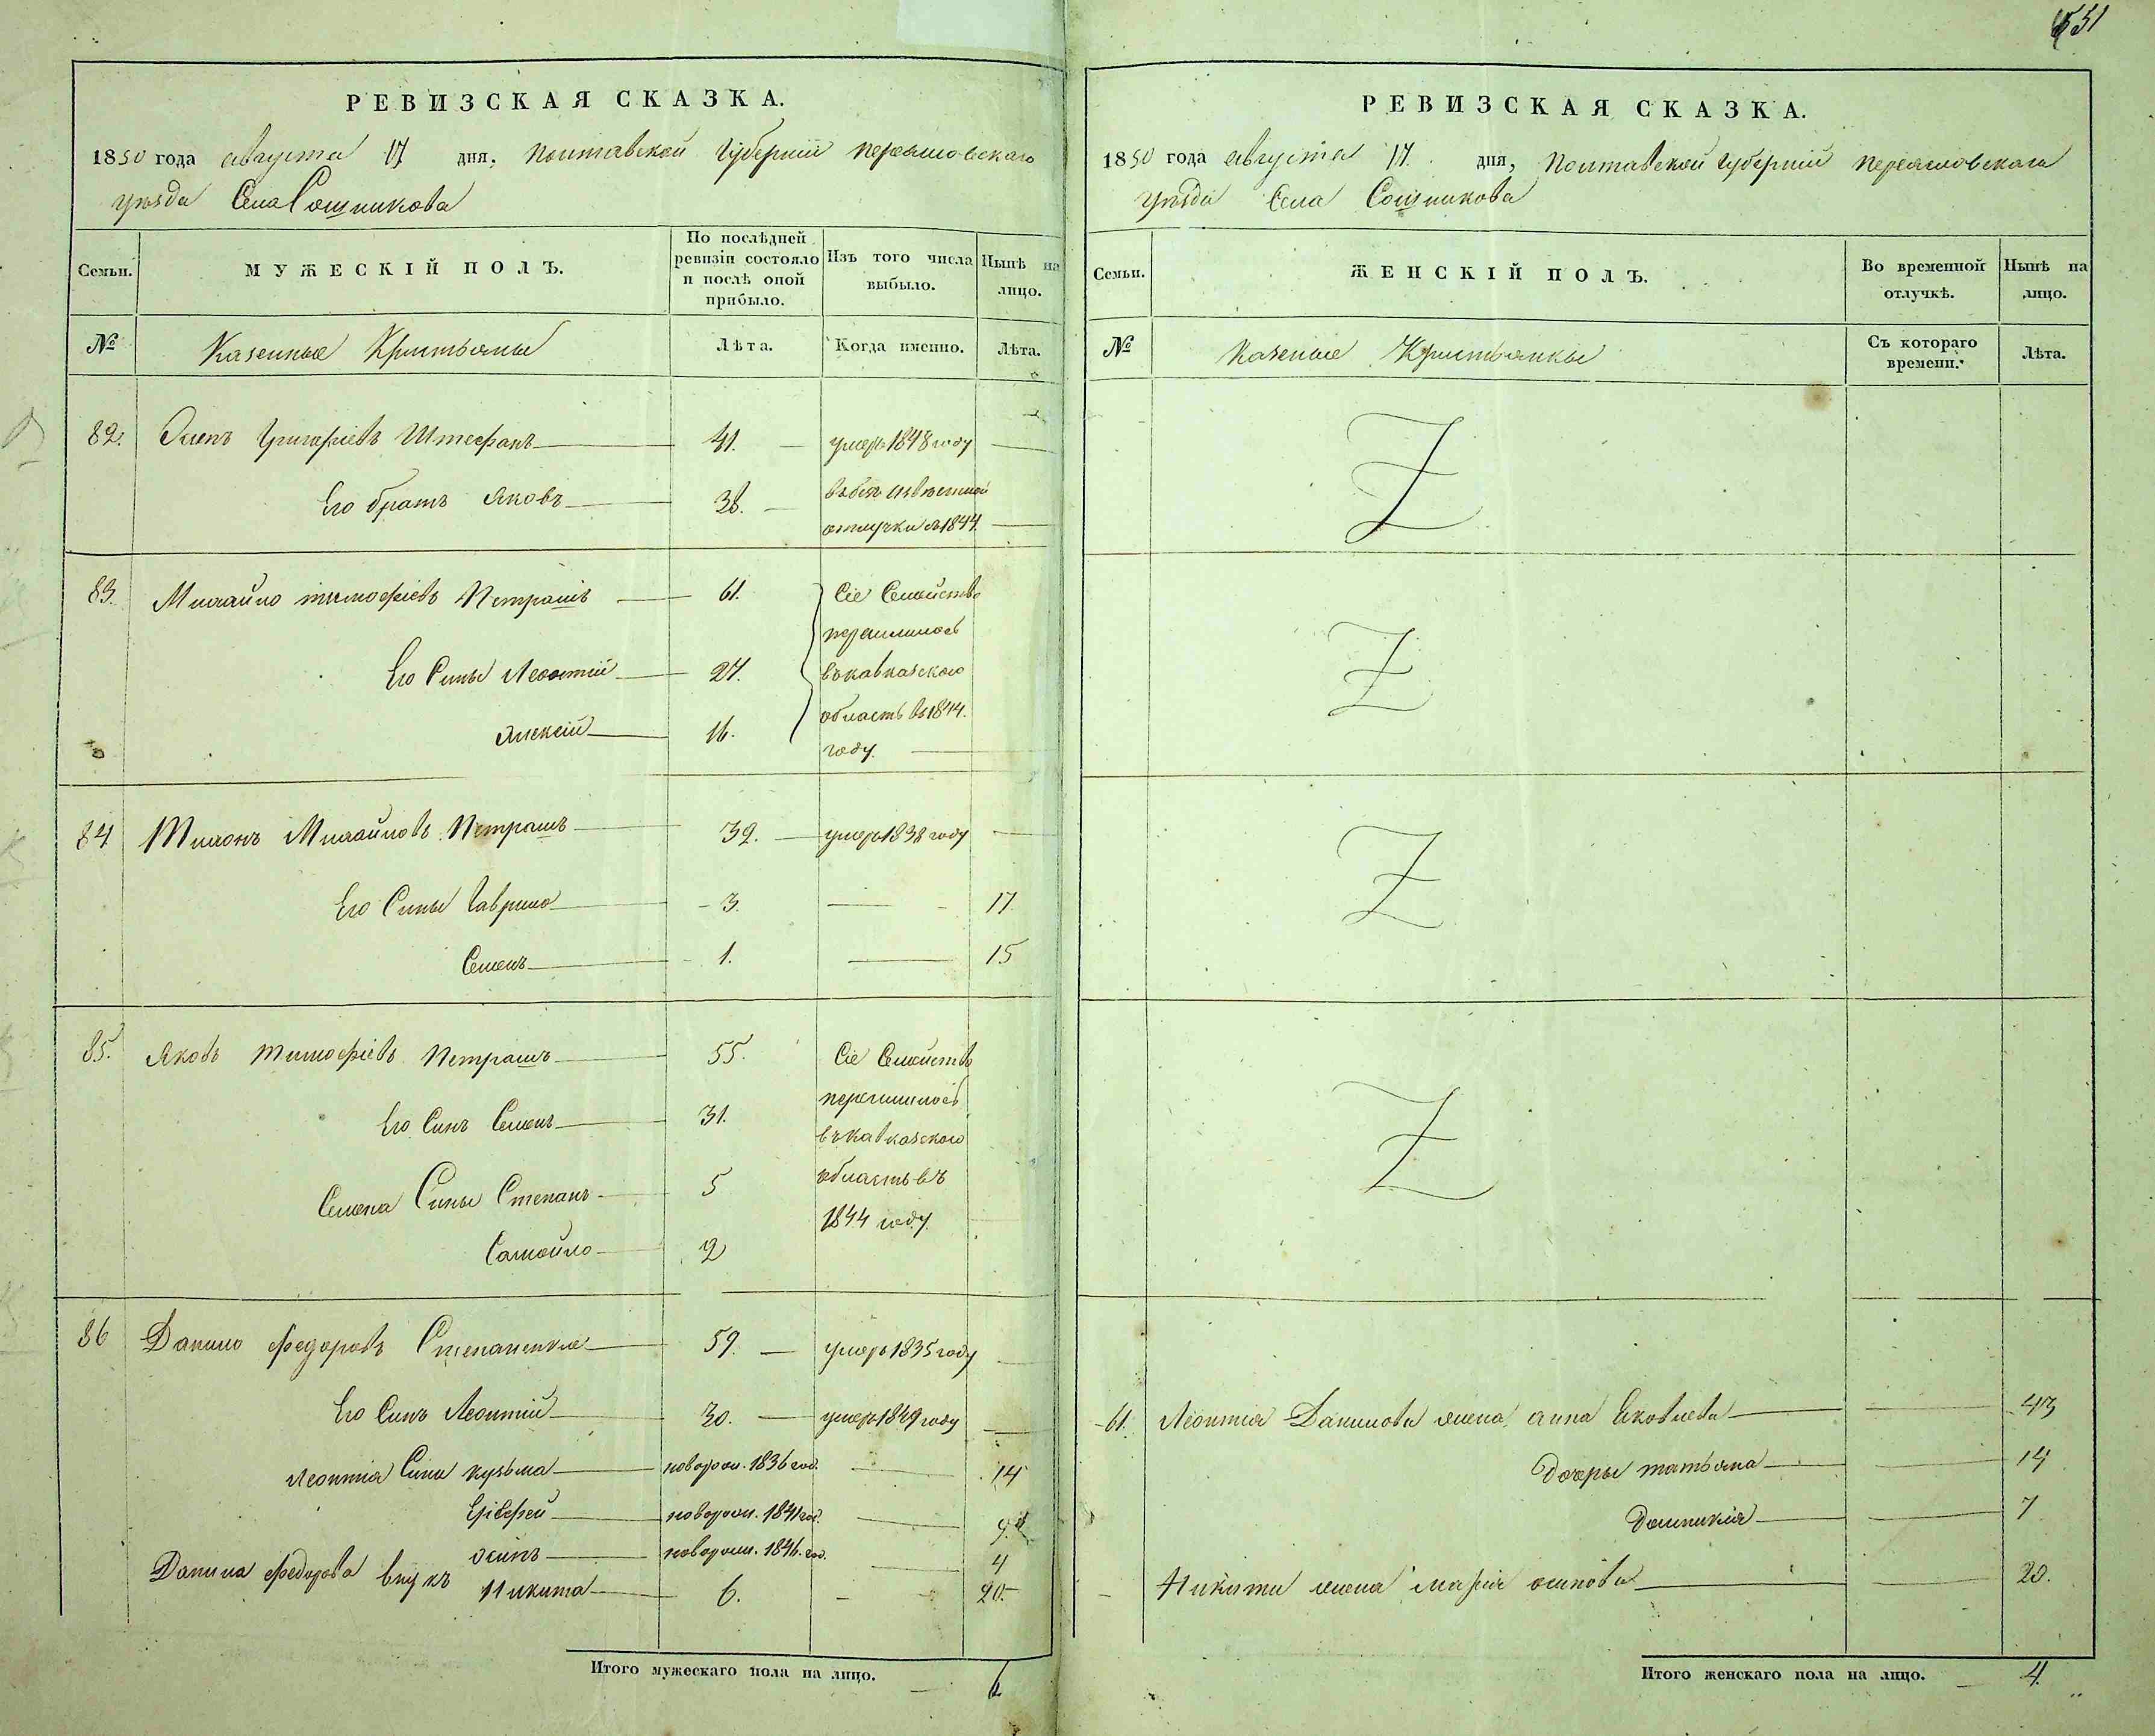 551
РЕВИЗСКАЯ СКАЗКА.
1850 года августа 17 дня, Полтавской Губернии Переяловского
уезда Села Сошникова
Семьи. МУЖЕСКІЙ ПОЛЪ. По послѣдней ревизіи состояло и послѣ оной прибыло. Изъ того числа выбыло. Нынѣ на лицо.
№ Казенные Кристьяны Лѣта. Когда именно. Лѣта.
82. Осипъ Григоріевъ Штефанъ 41. умеръ 1848 году
Его братъ Яковъ 38. въ безъизвѣстной
отлучки съ 1844
83. Михайло тимофіевъ Петрашъ 61. Сіе Семейство
переилилось
Его Сины Леонтій 27. въ кавказскою
область въ 1844.
Алексій 16. году
84 Тихонъ Михайловъ Петрашъ 39. умеръ 1838 году
Его Сины Гаврило 3. 17
Семенъ 1. 15
85. Яковъ тимофіевъ Петрашъ 55. Сіе Семейство
переилилось
Его Синъ Семенъ 31. въ кавказскою
Семена Сины Степанъ 5 область въ
1844 году.
Самойло 2
86 Данило Федоровъ Степаненко 59. умеръ 1835 году
Его Синъ Леонтій 30. умеръ 1849 году
Леонтія Сини кузьма новорож. 1836 год. 14
Ерофей новорож. 1841 год. 9.
осипъ новорож. 1846. год. 4
Данила Федорова внукъ Никита 6. 20
Итого мужескаго пола на лицо. 6
РЕВИЗСКАЯ СКАЗКА.
1850 года августа 17. дня, Полтавской Губерніи Переяловскаго
уезда Села Сошникова
Семьи. ЖЕНСКІЙ ПОЛЪ. Во временной отлучкѣ. Нынѣ на лицо.
№ Казеные Кристьянкы Съ котораго времени. Лѣта.
61. Леонтія Данилова жена анна Яковлева 43
дочеры татьяна 14
Домникія 7
Никиты жена марія осипова 20.
Итого женскаго пола на лицо. 4.